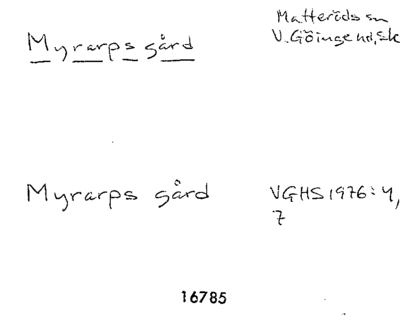 Myrarps gård
Matteröds sn
V. Göinge hd, Sk
Myrarps gård
VGHS 1976:4,
7
16785